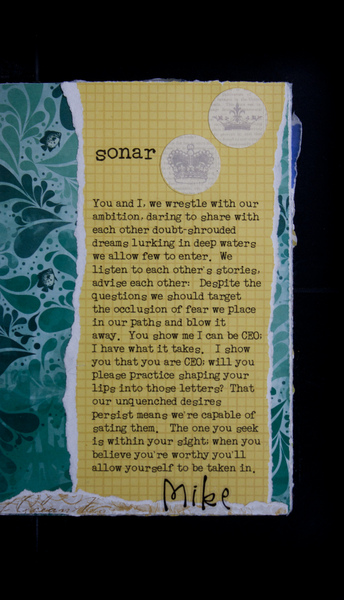 sonar
You and I, we wrestle with our
ambition, daring to share with
each other doubt-shrouded
dreams lurking in deep waters
we allow few to enter. We
listen to each other's stories,
advise each other: Despite the
questions we should target
the occlusion of fear we place
in our paths and blow it
away. You show me I can be CEO;
I have what it takes. I show
you that you are CEO; will you
please practice shaping your
lips into those letters? That
our unquenched desires
persist means we're capable of
sating them. The one you seek
is within your sight; when you
believe you're worthy you'll
allow yourself to be taken in.
Mike